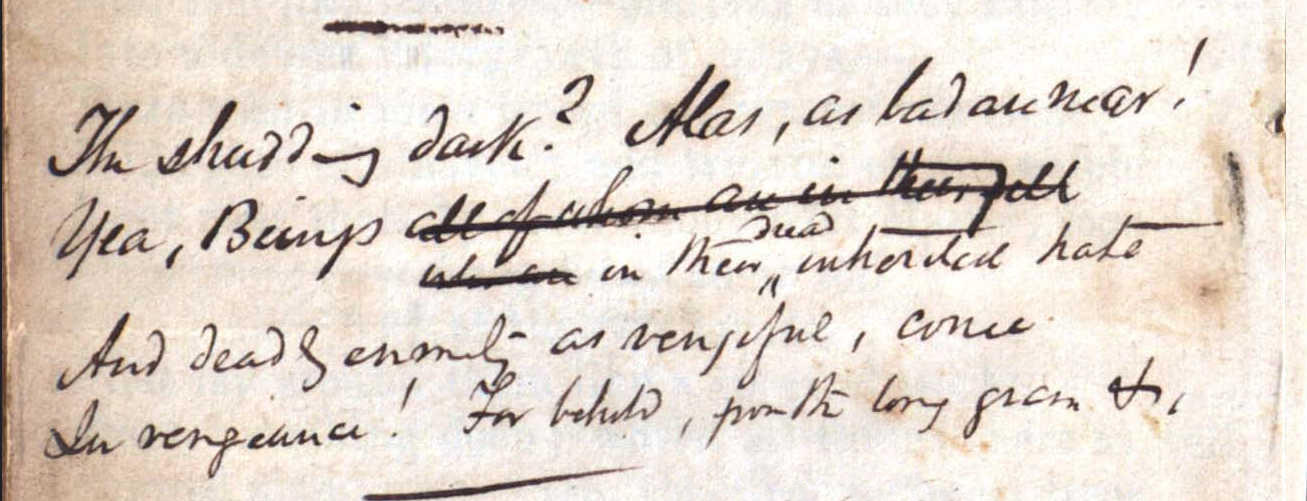 The shedding dark? Alas, as bad are near!
Yea, Beings all of whom are in their fell
who are in their dread inherited hate
And deadly enmity as vengeful, come
In vengeance! For behold, from the long grass &,